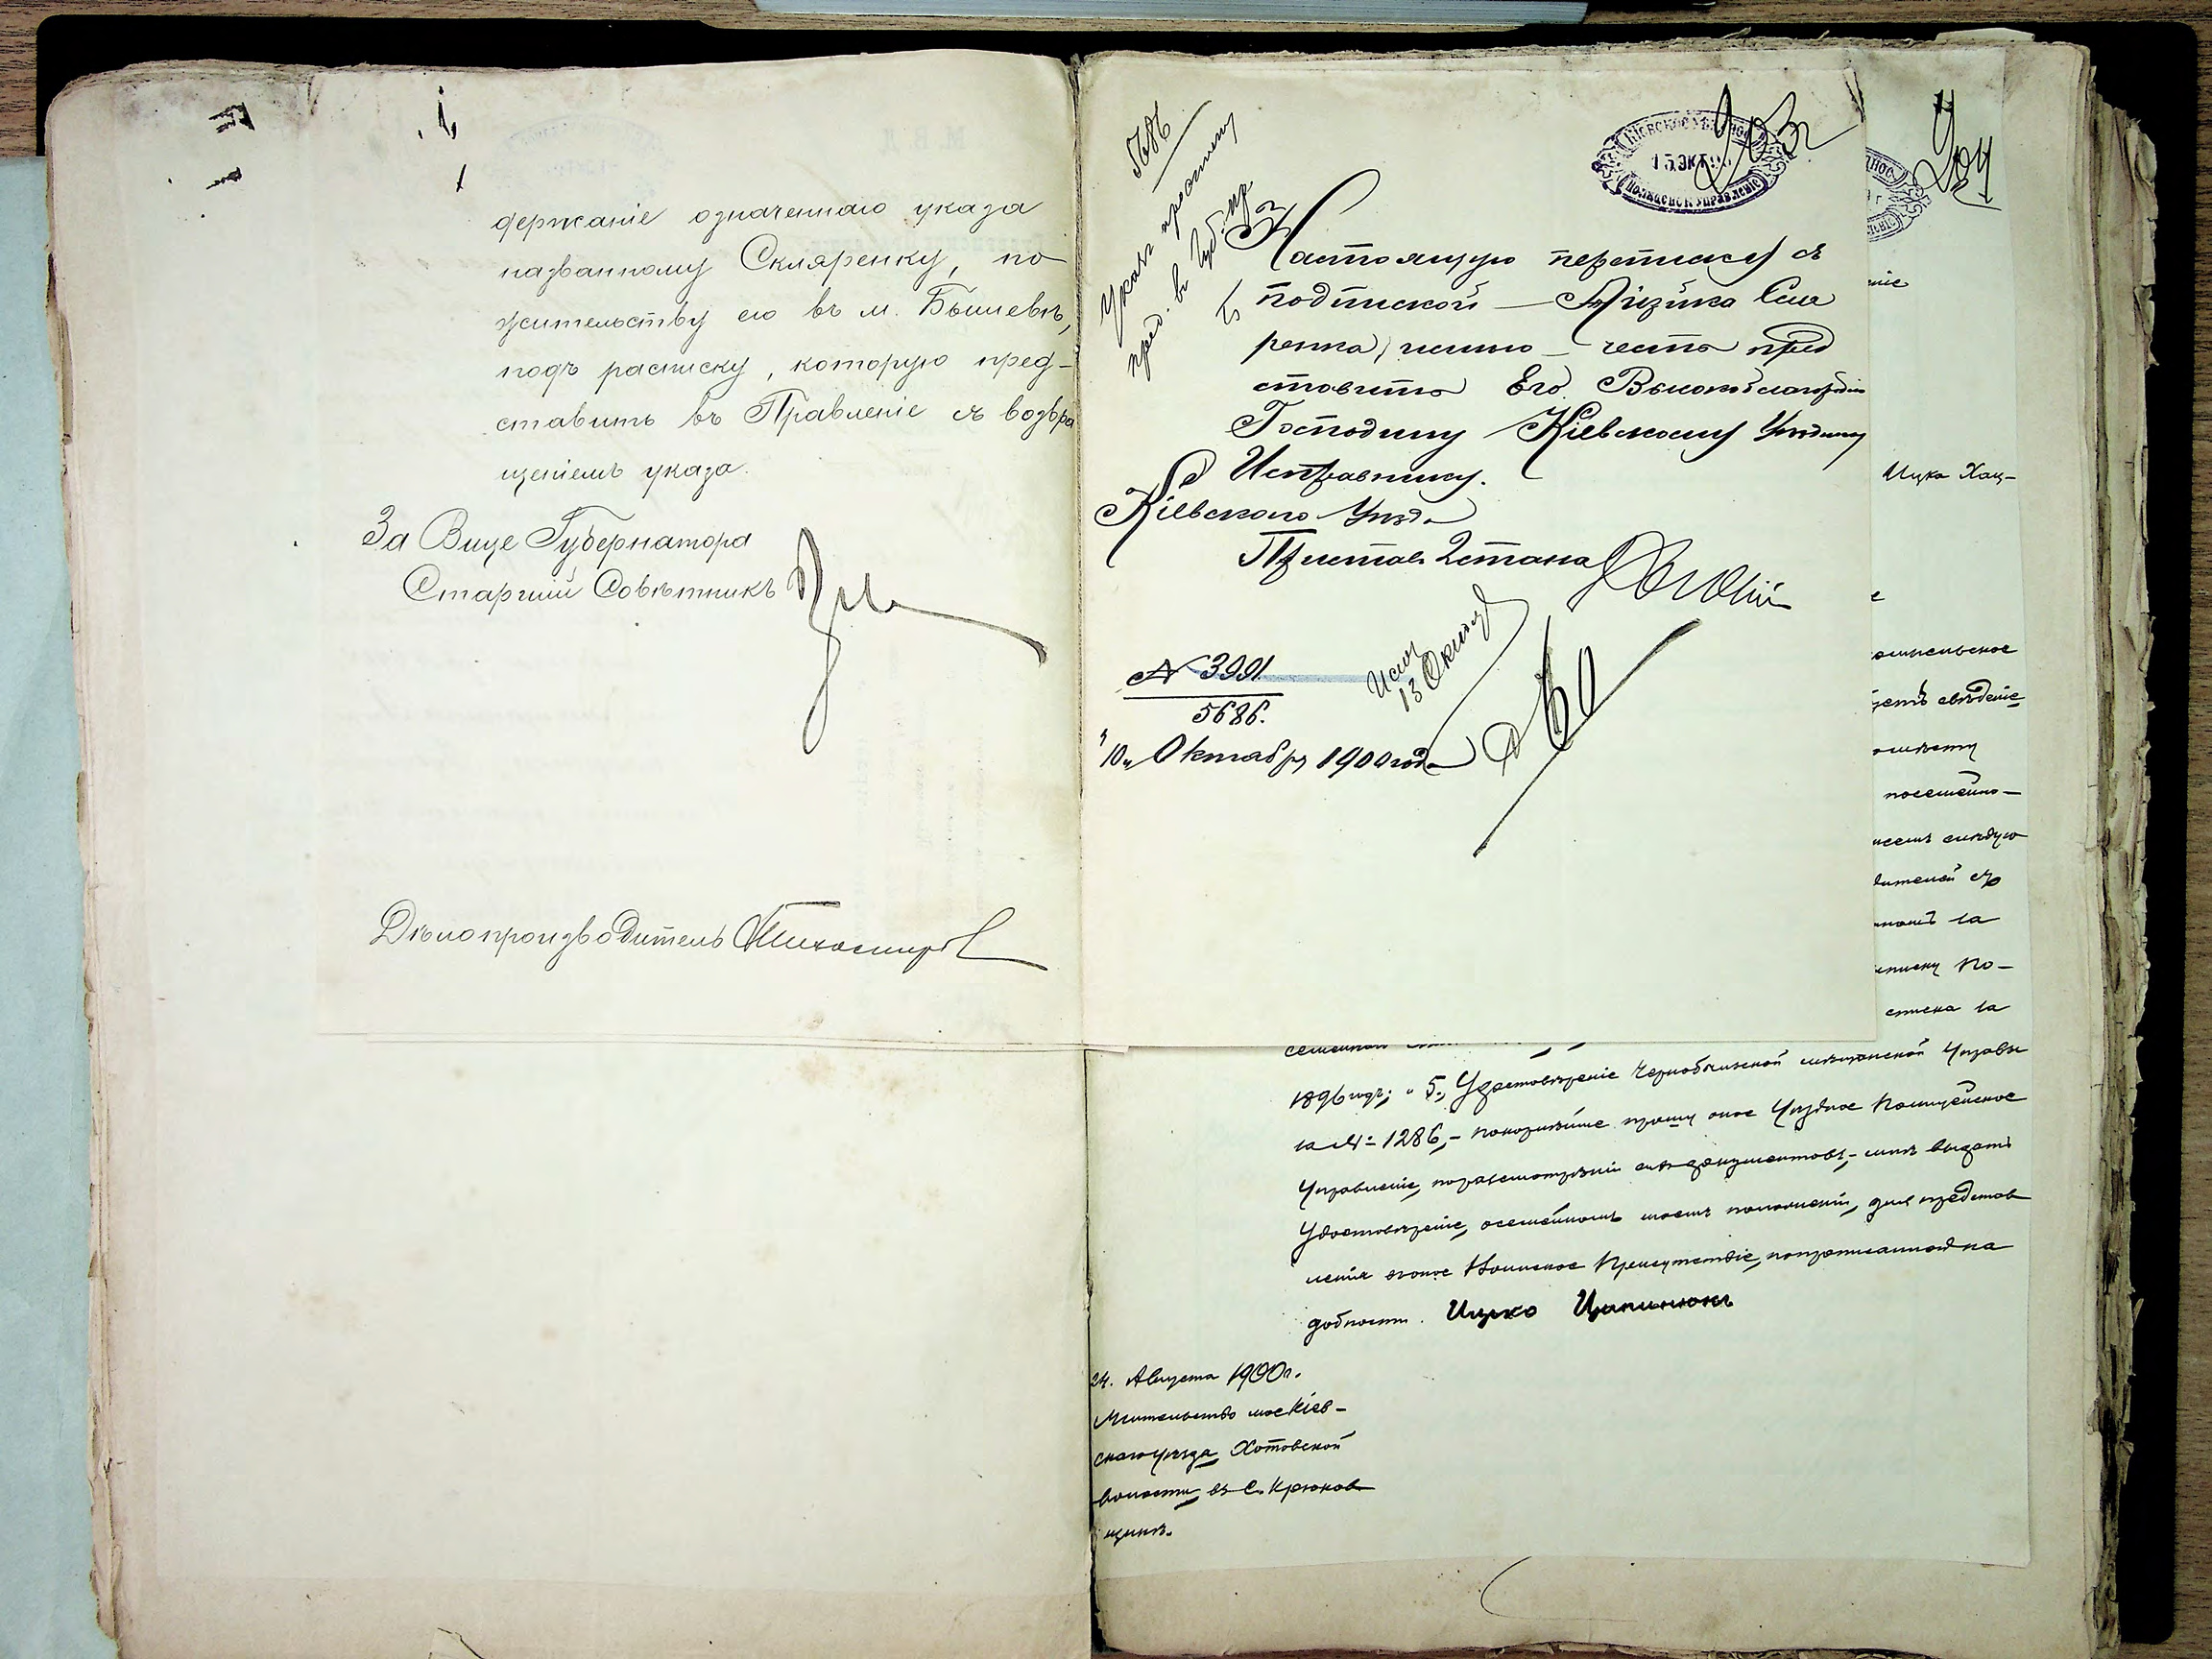 держаніе означеннаго указа
названному Скляренку, по
жительству его въ м. Бышевѣ,
подъ расписку, которую пред-
ставить въ Правленіе съ возвра
щеніемъ указа.
За Вице Губернатора
Старшій Совѣтникъ
Дѣлопроизводитель
5686
Указъ
пред. въ Губ. пр.
203
КІЕВСКОЕ УѢЗДНОЕ
ПОЛИЦЕЙСК. УПРАВЛЕНІЕ
Настоящую переписку съ
подпиской Айзика Скля
ренка, имѣю честь пред
ставить Его Высокоблагородію
Господину Кіевскому Уѣздному
Исправнику.
Кіевскаго Уѣзда
Приставъ 2 стана
№ 3991.
5686.
13 Октября
"10" Октября 1900 года
204
Ицка Хац-
свѣдѣніе
посемейно-
слѣдую
за
по-
списка за
1896 годъ; и 5, Удостовѣреніе Чернобыльской мѣщанской Управы
за № 1286,- покорнѣйше прошу оное Уѣздное Полицейское
Управленіе, по разсмотрѣніи сихъ документовъ,- мнѣ выдать
Удостовѣреніе, о семейномъ моемъ положеніи, для представ
ленія въ оное Воинское Присутствіе, по прописанной на
добности. Ицко Цыпинюкъ
24. Августа 1900 г.
Жительство мое Кіев-
скаго уѣзда Хотовской
волости, въ с. Крюков
щинѣ.